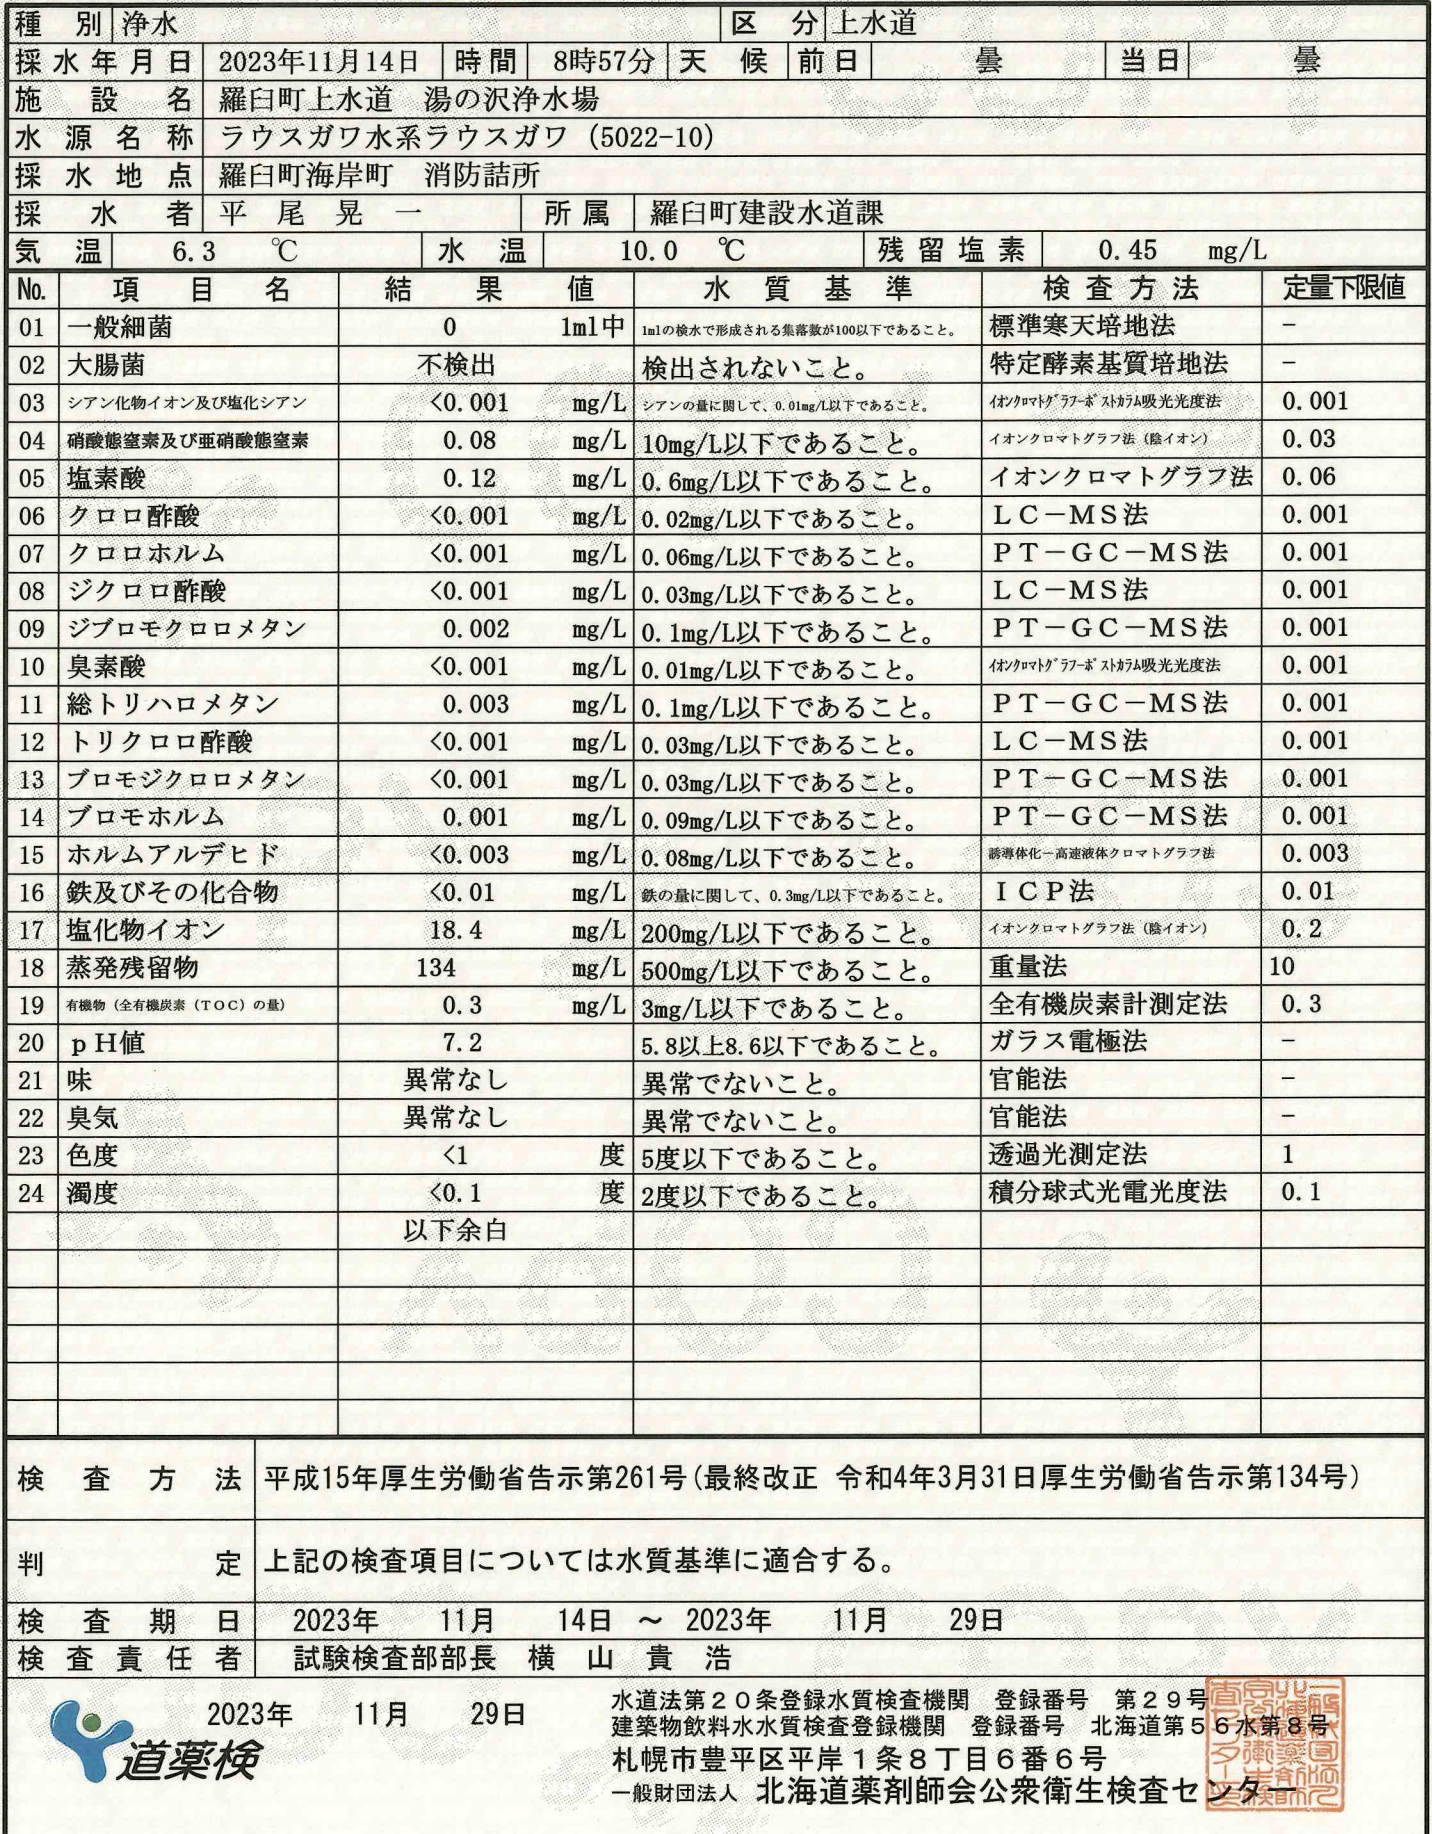 種別 浄水 区分 上水道
採水年月日 2023年11月14日 時間 8時57分 天候 前日 曇 当日 曇
施設名 羅臼町上水道 湯の沢浄水場
水源名称 ラウスガワ水系ラウスガワ (5022-10)
採水地点 羅臼町海岸町 消防詰所
採水者 平尾晃一 所属 羅臼町建設水道課
気温 6.3 ℃ 水温 10.0 ℃ 残留塩素 0.45 mg/L
No. 項目名 結果値 水質基準 検査方法 定量下限値
01 一般細菌 0 1ml中 1mlの検水で形成される集落数が100以下であること。 標準寒天培地法 −
02 大腸菌 不検出 検出されないこと。 特定酵素基質培地法 −
03 シアン化物イオン及び塩化シアン <0.001 mg/L シアンの量に関して、0.01mg/L以下であること。 ｲｵﾝｸﾛﾏﾄｸﾞﾗﾌｰﾎﾟｽﾄｶﾗﾑ吸光光度法 0.001
04 硝酸態窒素及び亜硝酸態窒素 0.08 mg/L 10mg/L以下であること。 イオンクロマトグラフ法（陰イオン） 0.03
05 塩素酸 0.12 mg/L 0.6mg/L以下であること。 イオンクロマトグラフ法 0.06
06 クロロ酢酸 <0.001 mg/L 0.02mg/L以下であること。 ＬＣ−ＭＳ法 0.001
07 クロロホルム <0.001 mg/L 0.06mg/L以下であること。 ＰＴ−ＧＣ−ＭＳ法 0.001
08 ジクロロ酢酸 <0.001 mg/L 0.03mg/L以下であること。 ＬＣ−ＭＳ法 0.001
09 ジブロモクロロメタン 0.002 mg/L 0.1mg/L以下であること。 ＰＴ−ＧＣ−ＭＳ法 0.001
10 臭素酸 <0.001 mg/L 0.01mg/L以下であること。 ｲｵﾝｸﾛﾏﾄｸﾞﾗﾌｰﾎﾟｽﾄｶﾗﾑ吸光光度法 0.001
11 総トリハロメタン 0.003 mg/L 0.1mg/L以下であること。 ＰＴ−ＧＣ−ＭＳ法 0.001
12 トリクロロ酢酸 <0.001 mg/L 0.03mg/L以下であること。 ＬＣ−ＭＳ法 0.001
13 ブロモジクロロメタン <0.001 mg/L 0.03mg/L以下であること。 ＰＴ−ＧＣ−ＭＳ法 0.001
14 ブロモホルム 0.001 mg/L 0.09mg/L以下であること。 ＰＴ−ＧＣ−ＭＳ法 0.001
15 ホルムアルデヒド <0.003 mg/L 0.08mg/L以下であること。 誘導体化−高速液体クロマトグラフ法 0.003
16 鉄及びその化合物 <0.01 mg/L 鉄の量に関して、0.3mg/L以下であること。 ＩＣＰ法 0.01
17 塩化物イオン 18.4 mg/L 200mg/L以下であること。 イオンクロマトグラフ法（陰イオン） 0.2
18 蒸発残留物 134 mg/L 500mg/L以下であること。 重量法 10
19 有機物（全有機炭素（ＴＯＣ）の量） 0.3 mg/L 3mg/L以下であること。 全有機炭素計測定法 0.3
20 ｐＨ値 7.2 5.8以上8.6以下であること。 ガラス電極法 −
21 味 異常なし 異常でないこと。 官能法 −
22 臭気 異常なし 異常でないこと。 官能法 −
23 色度 <1 度 5度以下であること。 透過光測定法 1
24 濁度 <0.1 度 2度以下であること。 積分球式光電光度法 0.1
以下余白
検査方法 平成15年厚生労働省告示第261号(最終改正 令和4年3月31日厚生労働省告示第134号)
判定 上記の検査項目については水質基準に適合する。
検査期日 2023年 11月 14日 ～ 2023年 11月 29日
検査責任者 試験検査部部長 横山貴浩
2023年 11月 29日
水道法第２０条登録水質検査機関 登録番号 第２９号
建築物飲料水水質検査登録機関 登録番号 北海道第５６水第８号
札幌市豊平区平岸１条８丁目６番６号
一般財団法人 北海道薬剤師会公衆衛生検査センター
道薬検